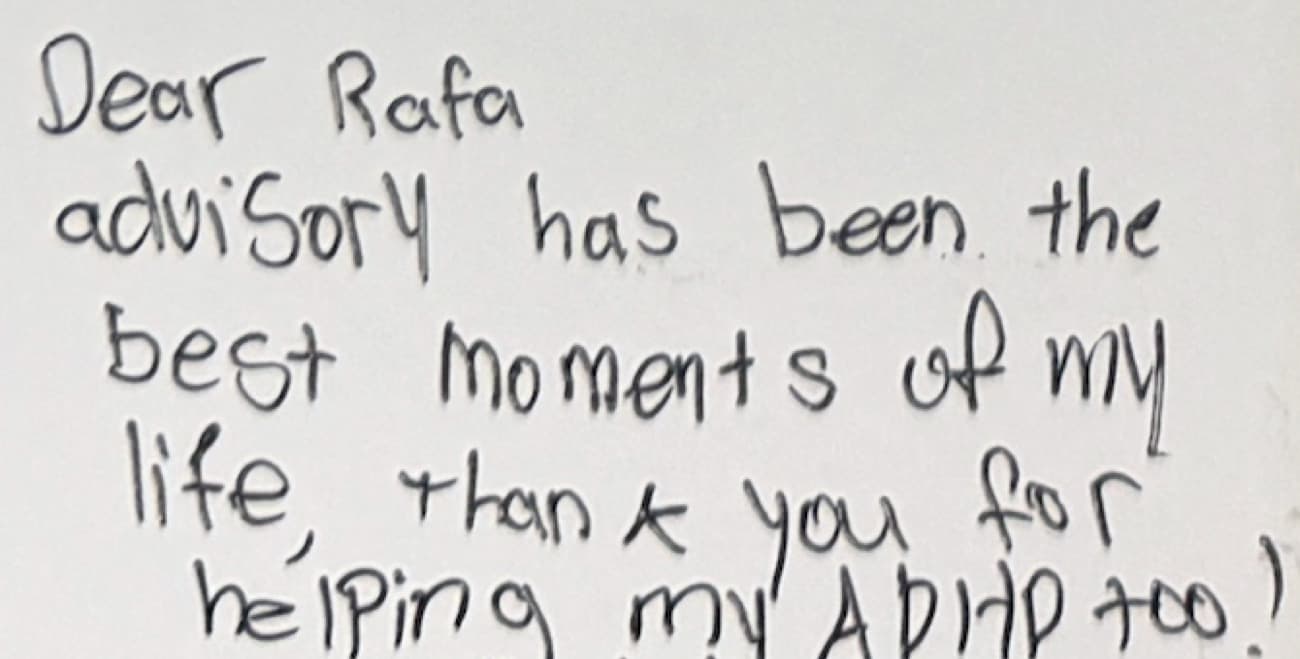 Dear Rafa
advisory has been the
best moments of my
life, thank you for
helping my ADHD too!